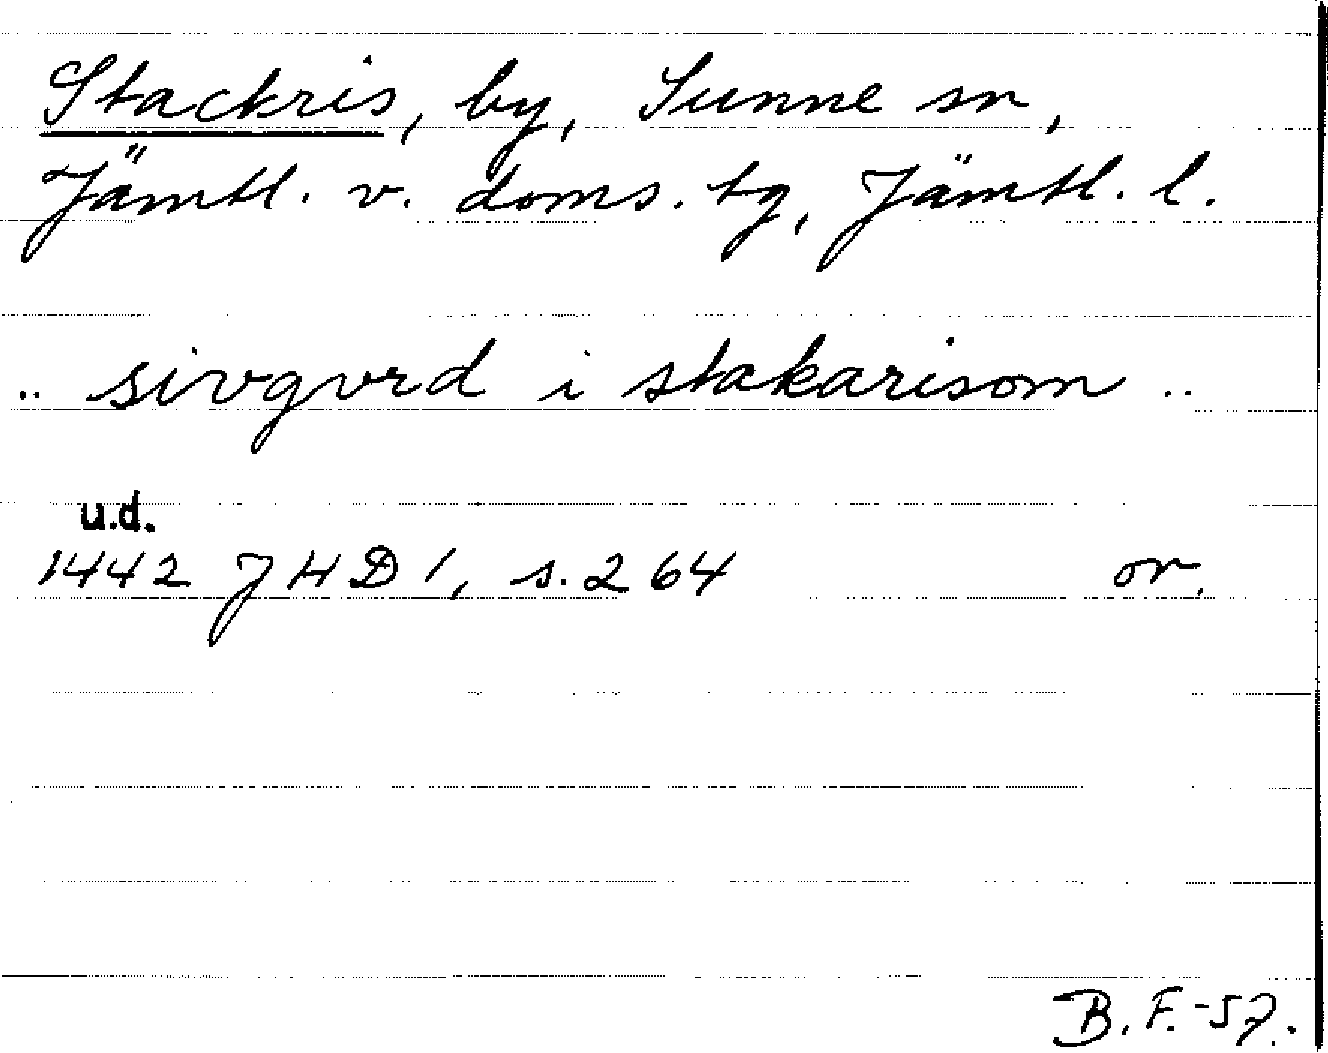 Stackris, by, Sunne sn,
Jämtl. v. doms. tg, Jämtl. l.
.. sivgvrd i stakarisom ..
u.d.
1442 JHD 1, s. 264 or.
B. F. -57.